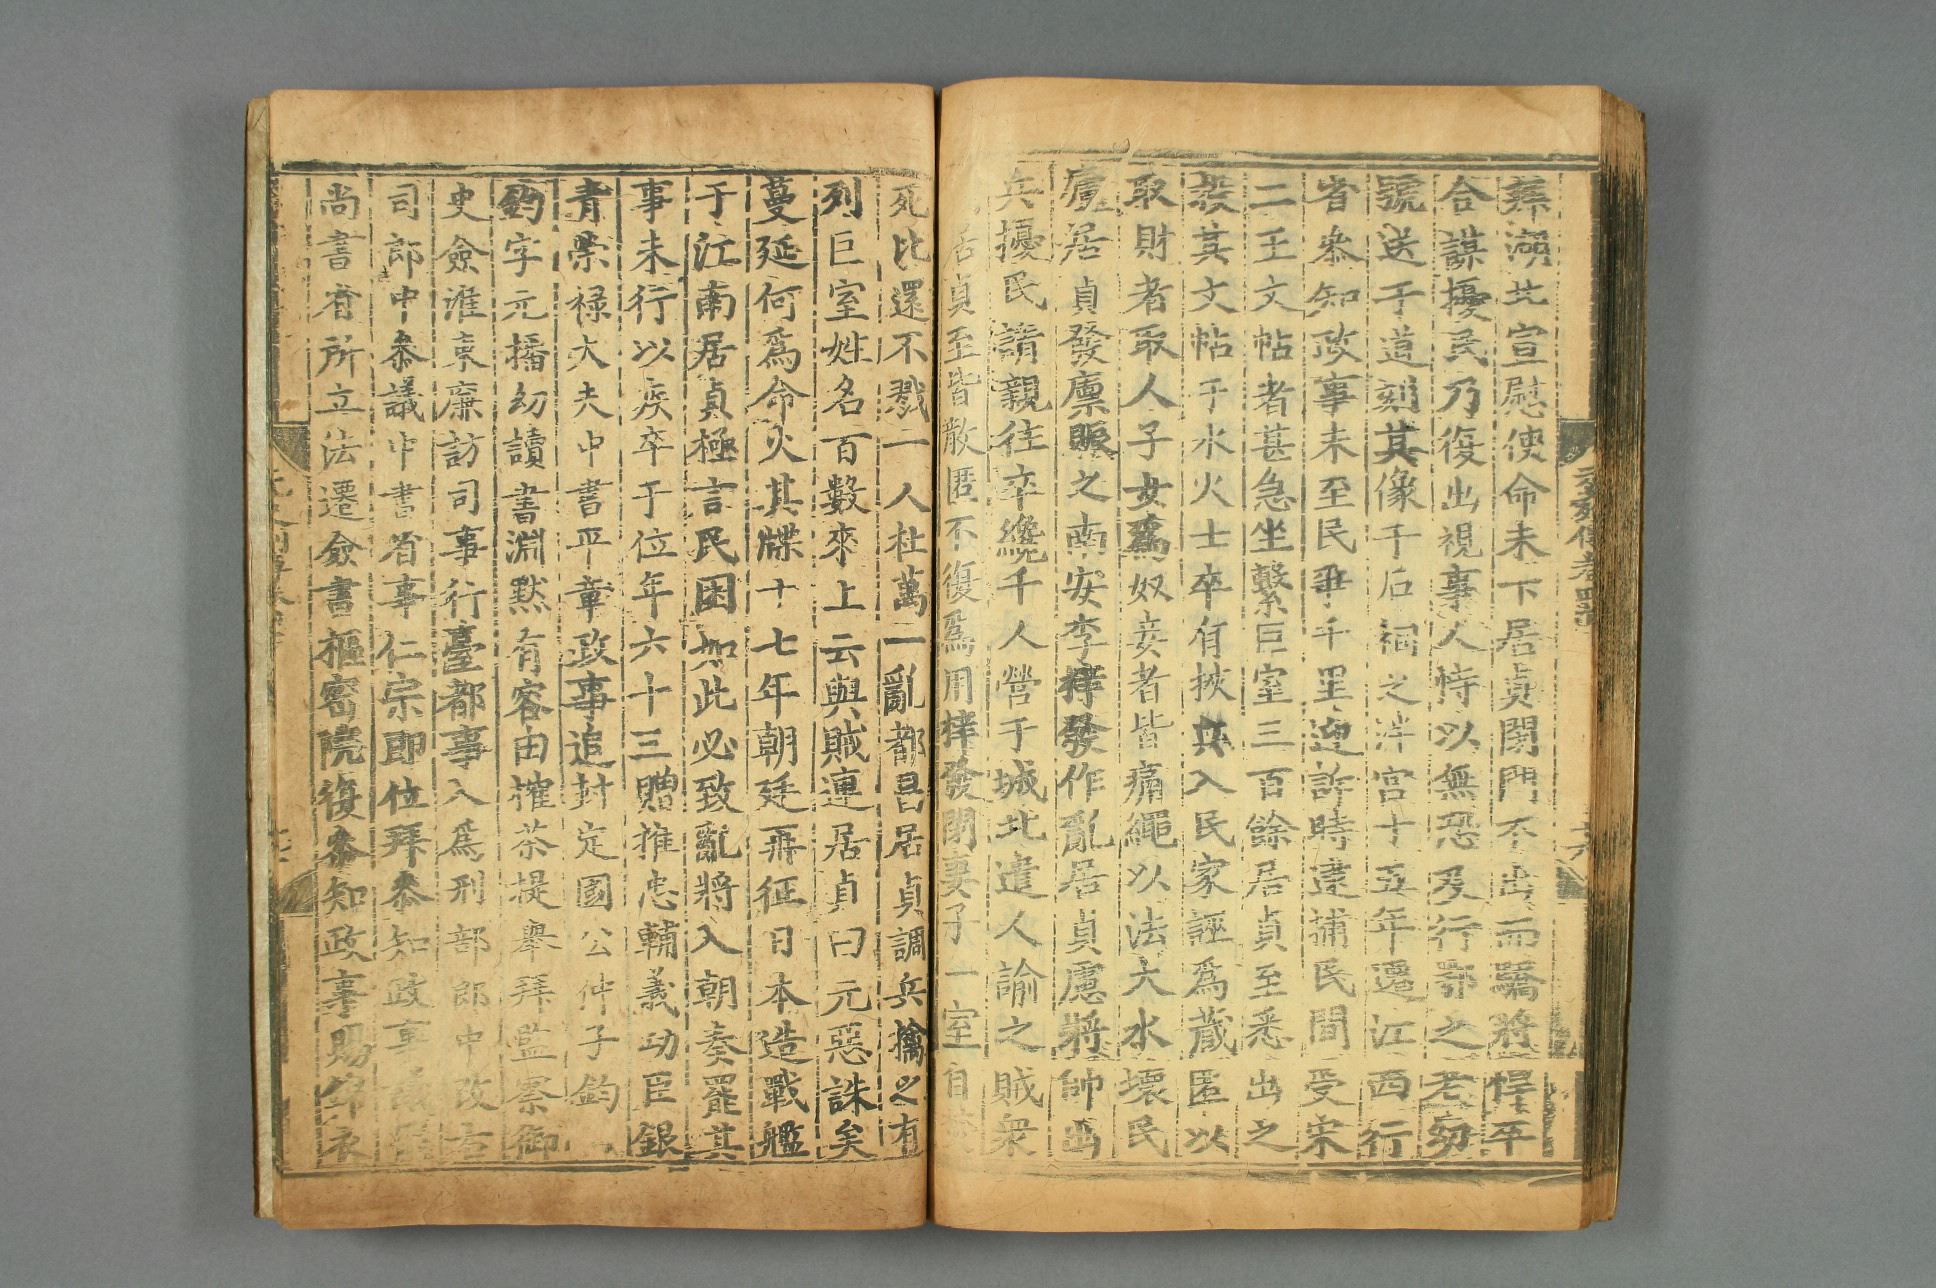 蘄湖北宣慰使命未下居貞閉門不出而驕將悍卒
合謀擾民乃復出視事人恃以無恐及行鄂之老幼
號送于道刻其像于石祠之泮宮十五年遷江西行
省參知政事未至民爭千里迎訴時逮捕民間受宋
二王文帖者甚急坐繫巨室三百餘居貞至悉出之
投其文帖于水火士卒有挾兵入民家誣爲蔵匿以
取財者取人子女爲奴妾者皆痛繩以法大水壞民
廬居貞發廩賑之南安李梓發作亂居貞慮將帥出
兵擾民請親往卒纔千人營于城北遣人諭之賊衆
居貞至皆散匿不復爲用梓發閉妻子一室自
死比還不戮一人杜萬一亂都昌居貞調兵擒之有
列巨室姓名百數來上云與賊連居貞曰元惡誅矣
蔓延何爲命火其牒十七年朝廷再征日本造戰艦
于江南居貞極言民困如此必致亂將入朝奏罷其
事未行以疾卒于位年六十三贈推忠輔義功臣銀
青榮祿大夫中書平章政事追封定國公仲子鈞
鈞字元播幼讀書淵默有容由搉茶提舉拜監察御
史僉淮東廉訪司事行臺都事入爲刑部郎中改右
司郎中參議中書省事仁宗即位拜參知政事議
尚書省所立法遷僉書樞密院復參知政事賜錦衣